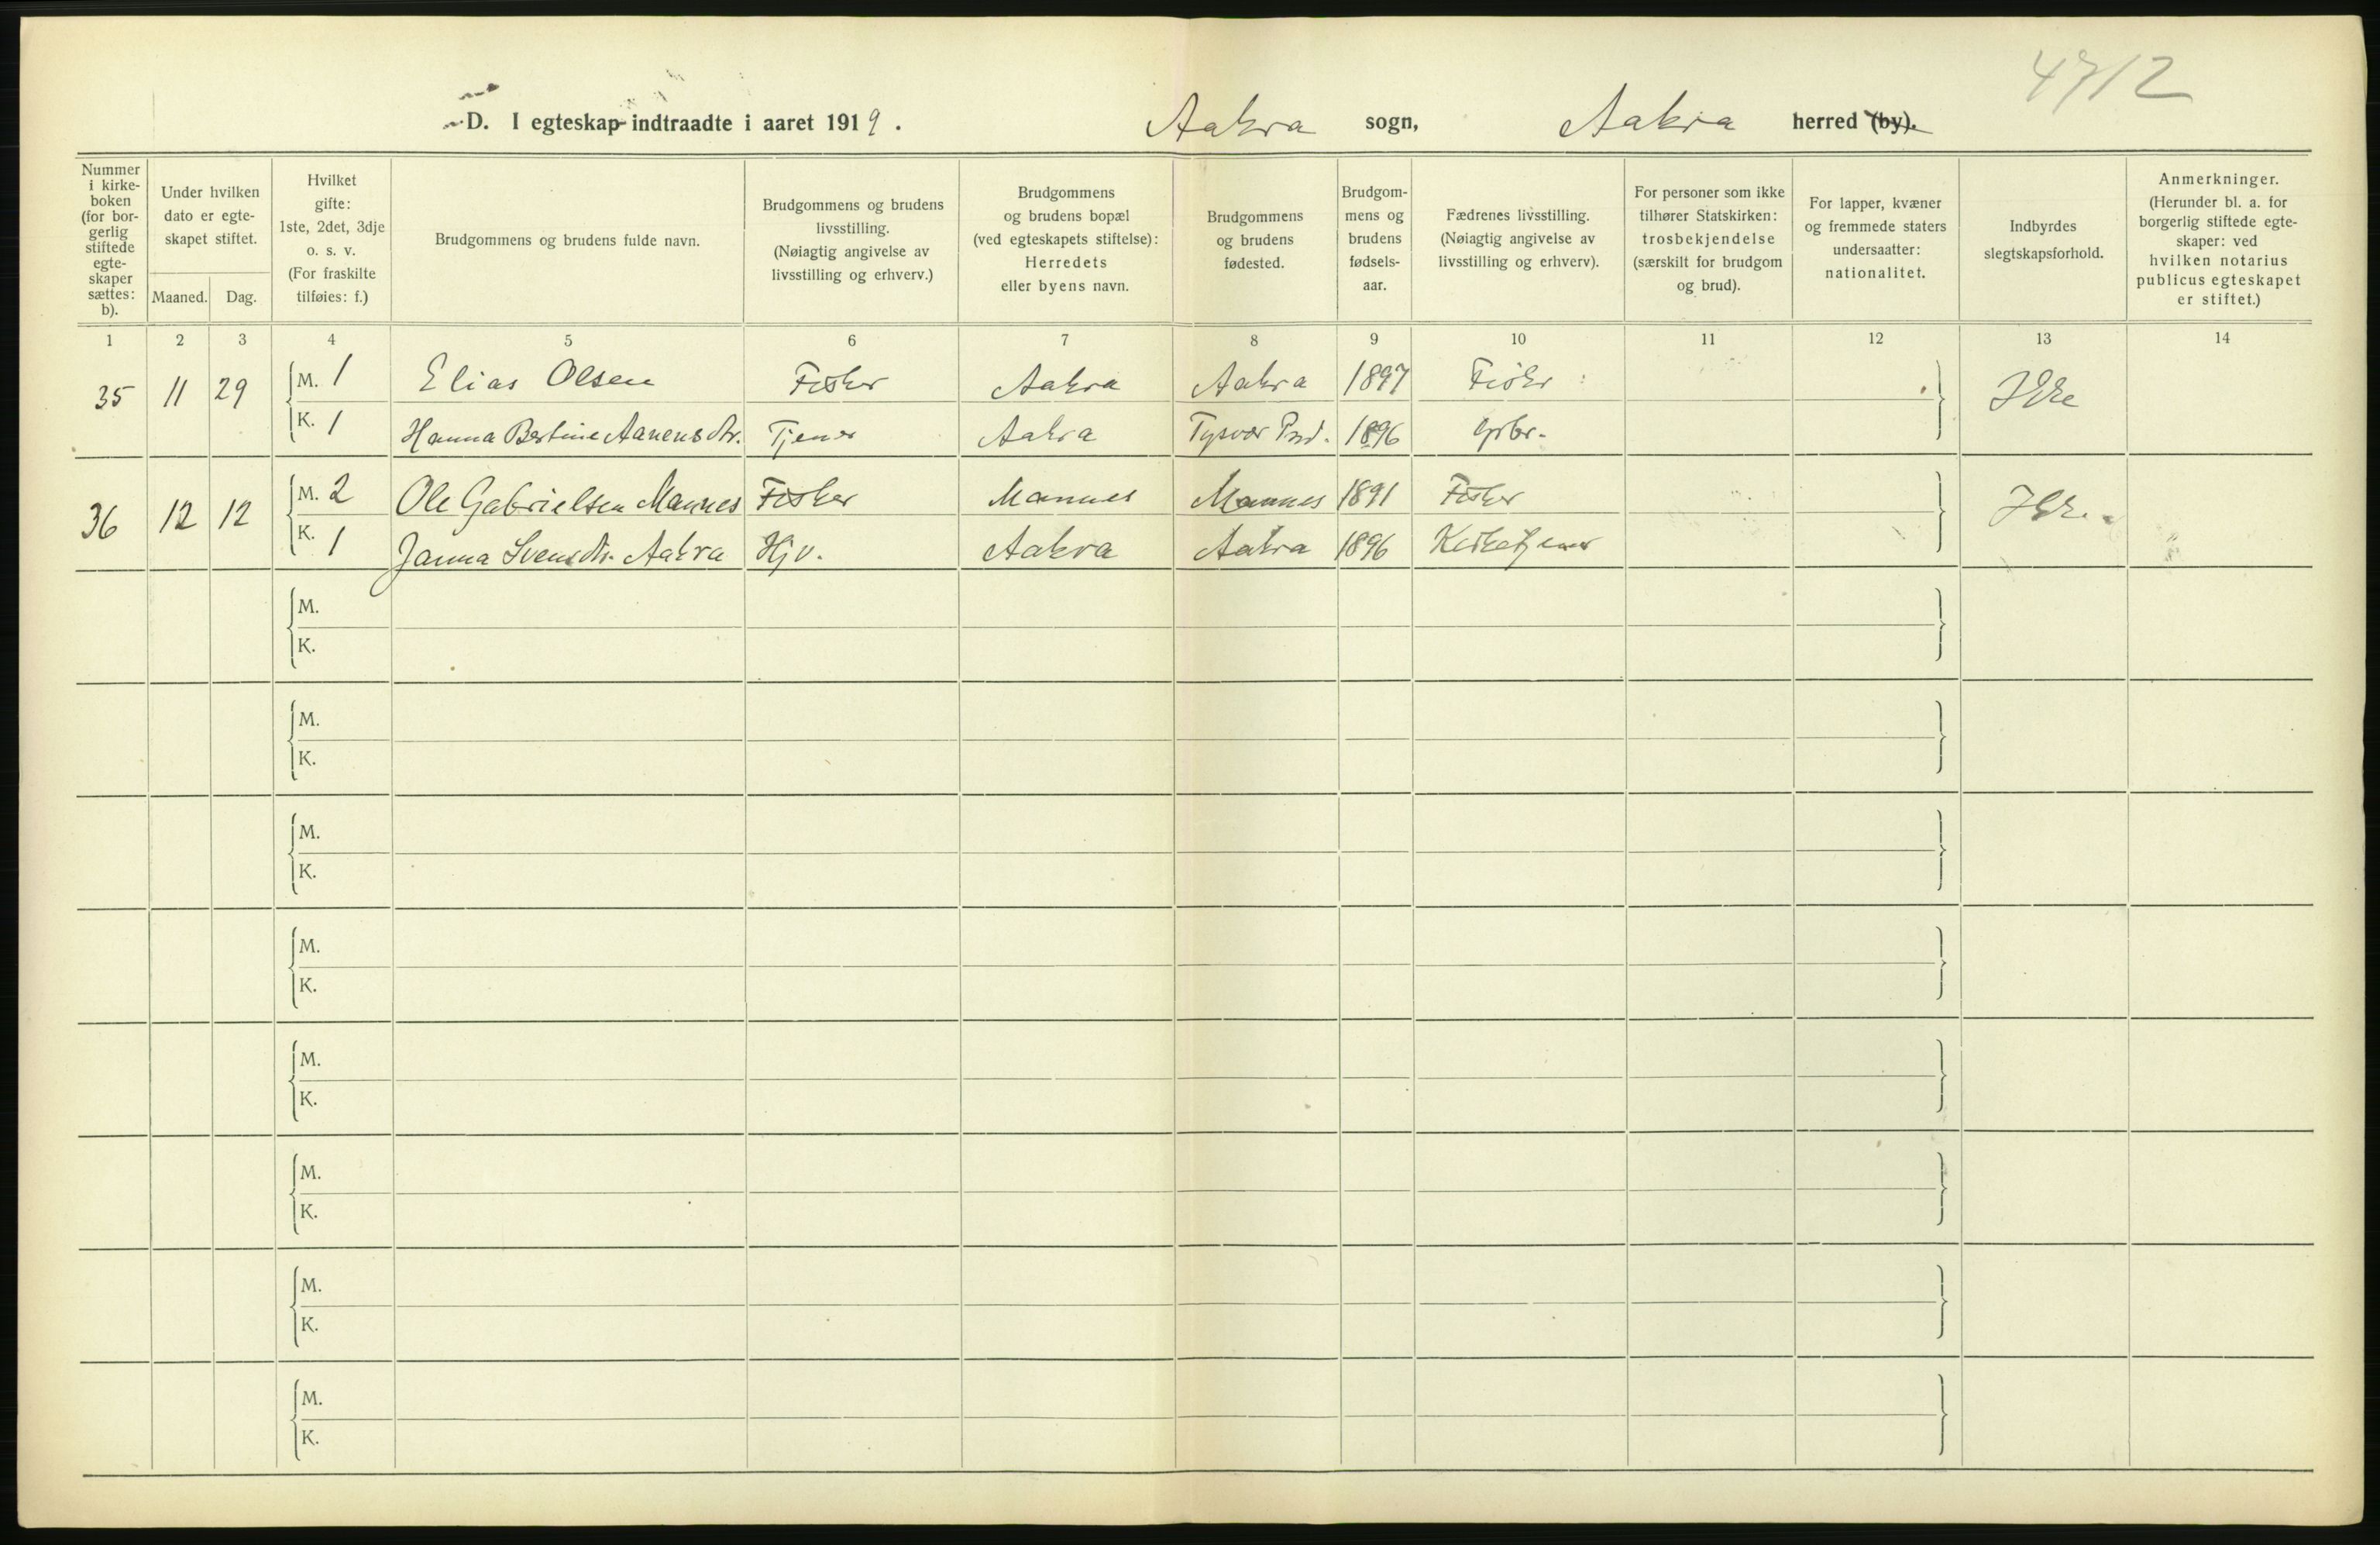 4712
D. I egteskap indtraadte i aaret 1919.
Aakra sogn, Aakra herred (by).
Nummer i kirke-boken (for bor-gerlig stiftede egte-skaper sættes: b).
Under hvilken dato er egte-skapet stiftet.
Maaned. Dag.
Hvilket gifte: 1ste, 2det, 3dje o. s. v. (For fraskilte tilføies: f.)
Brudgommens og brudens fulde navn.
Brudgommens og brudens livsstilling. (Nøiagtig angivelse av livsstilling og erhverv.)
Brudgommens og brudens bopæl (ved egteskapets stiftelse): Herredets eller byens navn.
Brudgommens og brudens fødested.
Brudgom-mens og brudens fødsels-aar.
Fædrenes livsstilling. (Nøiagtig angivelse av livsstilling og erhverv).
For personer som ikke tilhører Statskirken: trosbekjendelse (særskilt for brudgom og brud).
For lapper, kvæner og fremmede staters undersaatter: nationalitet.
Indbyrdes slegtskapsforhold.
Anmerkninger. (Herunder bl. a. for borgerlig stiftede egte-skaper: ved hvilken notarius publicus egteskapet er stiftet.)
1 2 3 4 5 6 7 8 9 10 11 12 13 14
35 11 29 M. 1 Elias Olsen Fisker Aakra Aakra 1897 Fisker Ikke
K. 1 Hanna Bertine Aanensdtr. Tjener Aakra Tysvær Pnd. 1896 Grbr.
36 12 12 M. 2 Ole Gabrielsen Mannes Fisker Mannes Mannes 1891 Fisker
K. 1 Janna Svensdtr. Aakra Hjv. Aakra Aakra 1896 Kirketjener
M.
K.
M.
K.
M.
K.
M.
K.
M.
K.
M.
K.
M.
K.
M.
K.